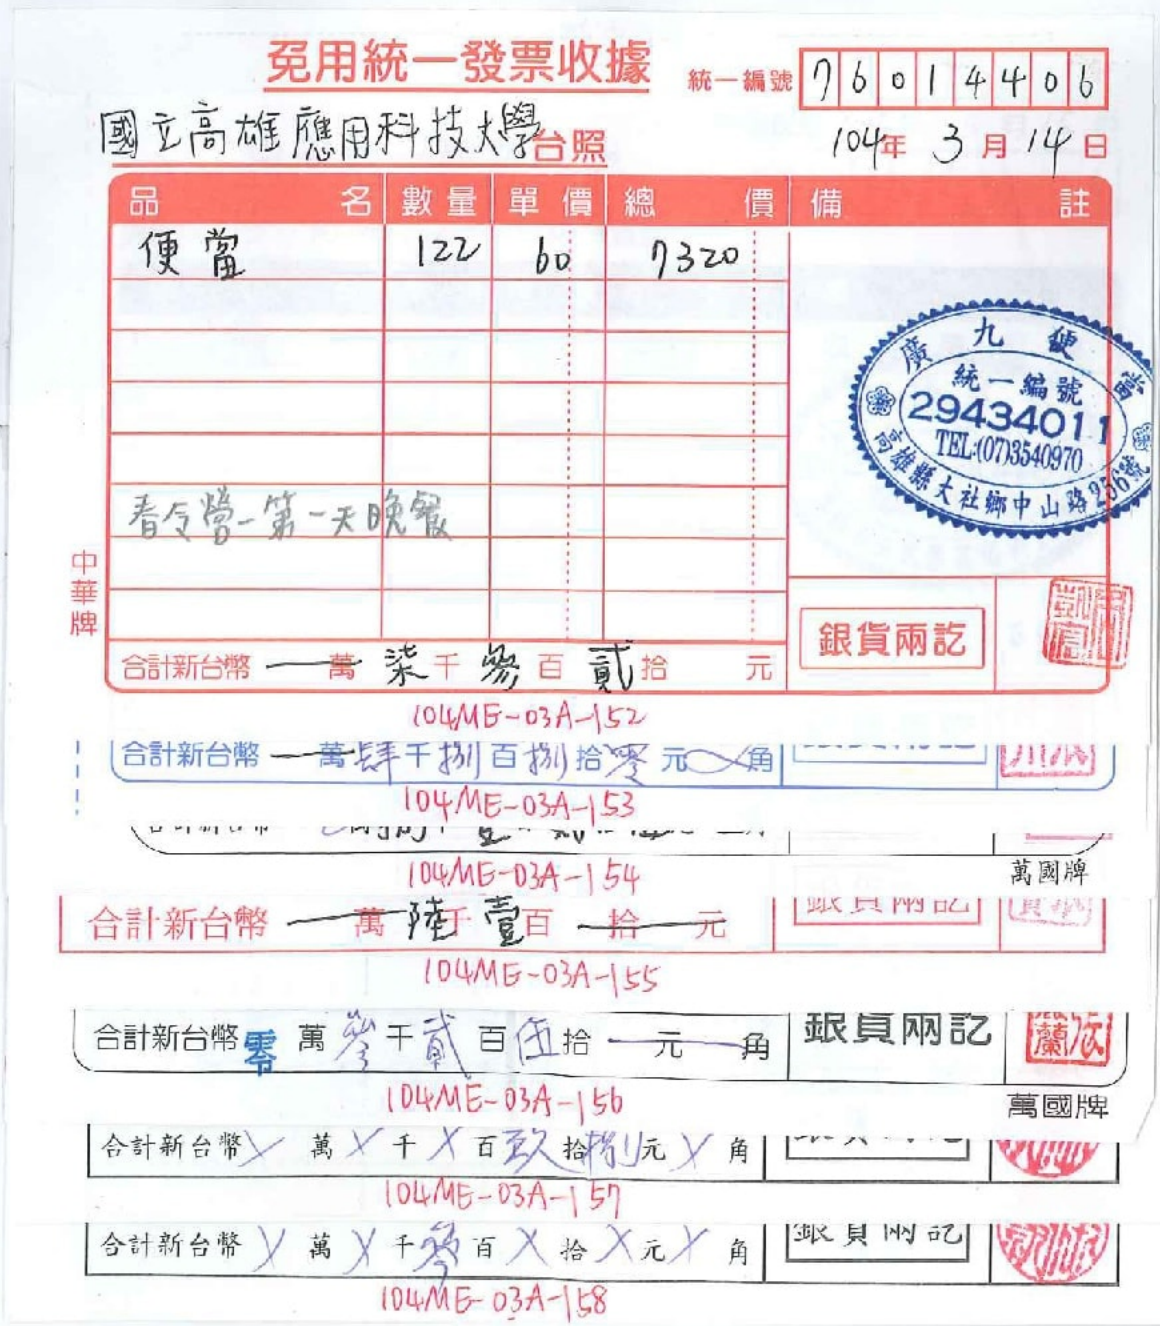 免用統一發票收據
統一編號 76014406
國立高雄應用科技大學台照
104年 3月 14日
品名 數量 單價 總價 備註
便當 122 60 7320
廣九便當
統一編號
29434011
TEL:(07)3540970
高雄縣大社鄉中山路256號
春令營-第一天晚餐
中華牌
銀貨兩訖
合計新台幣 一萬 柒千 參百 貳拾 元
104ME-03A-152
合計新台幣 一萬 肆千 捌百 捌拾 零元 角
104ME-03A-153
104ME-03A-154
萬國牌
合計新台幣 一萬 陸千 壹百 拾 元
銀貨兩訖
104ME-03A-155
合計新台幣 零萬 參千 貳百 伍拾 元 角
銀貨兩訖
104ME-03A-156
萬國牌
合計新台幣 X 萬 X 千 X 百 玖拾 捌元 X 角
104ME-03A-157
合計新台幣 X 萬 X 千 參百 X 拾 X 元 X 角
銀貨兩訖
104ME-03A-158